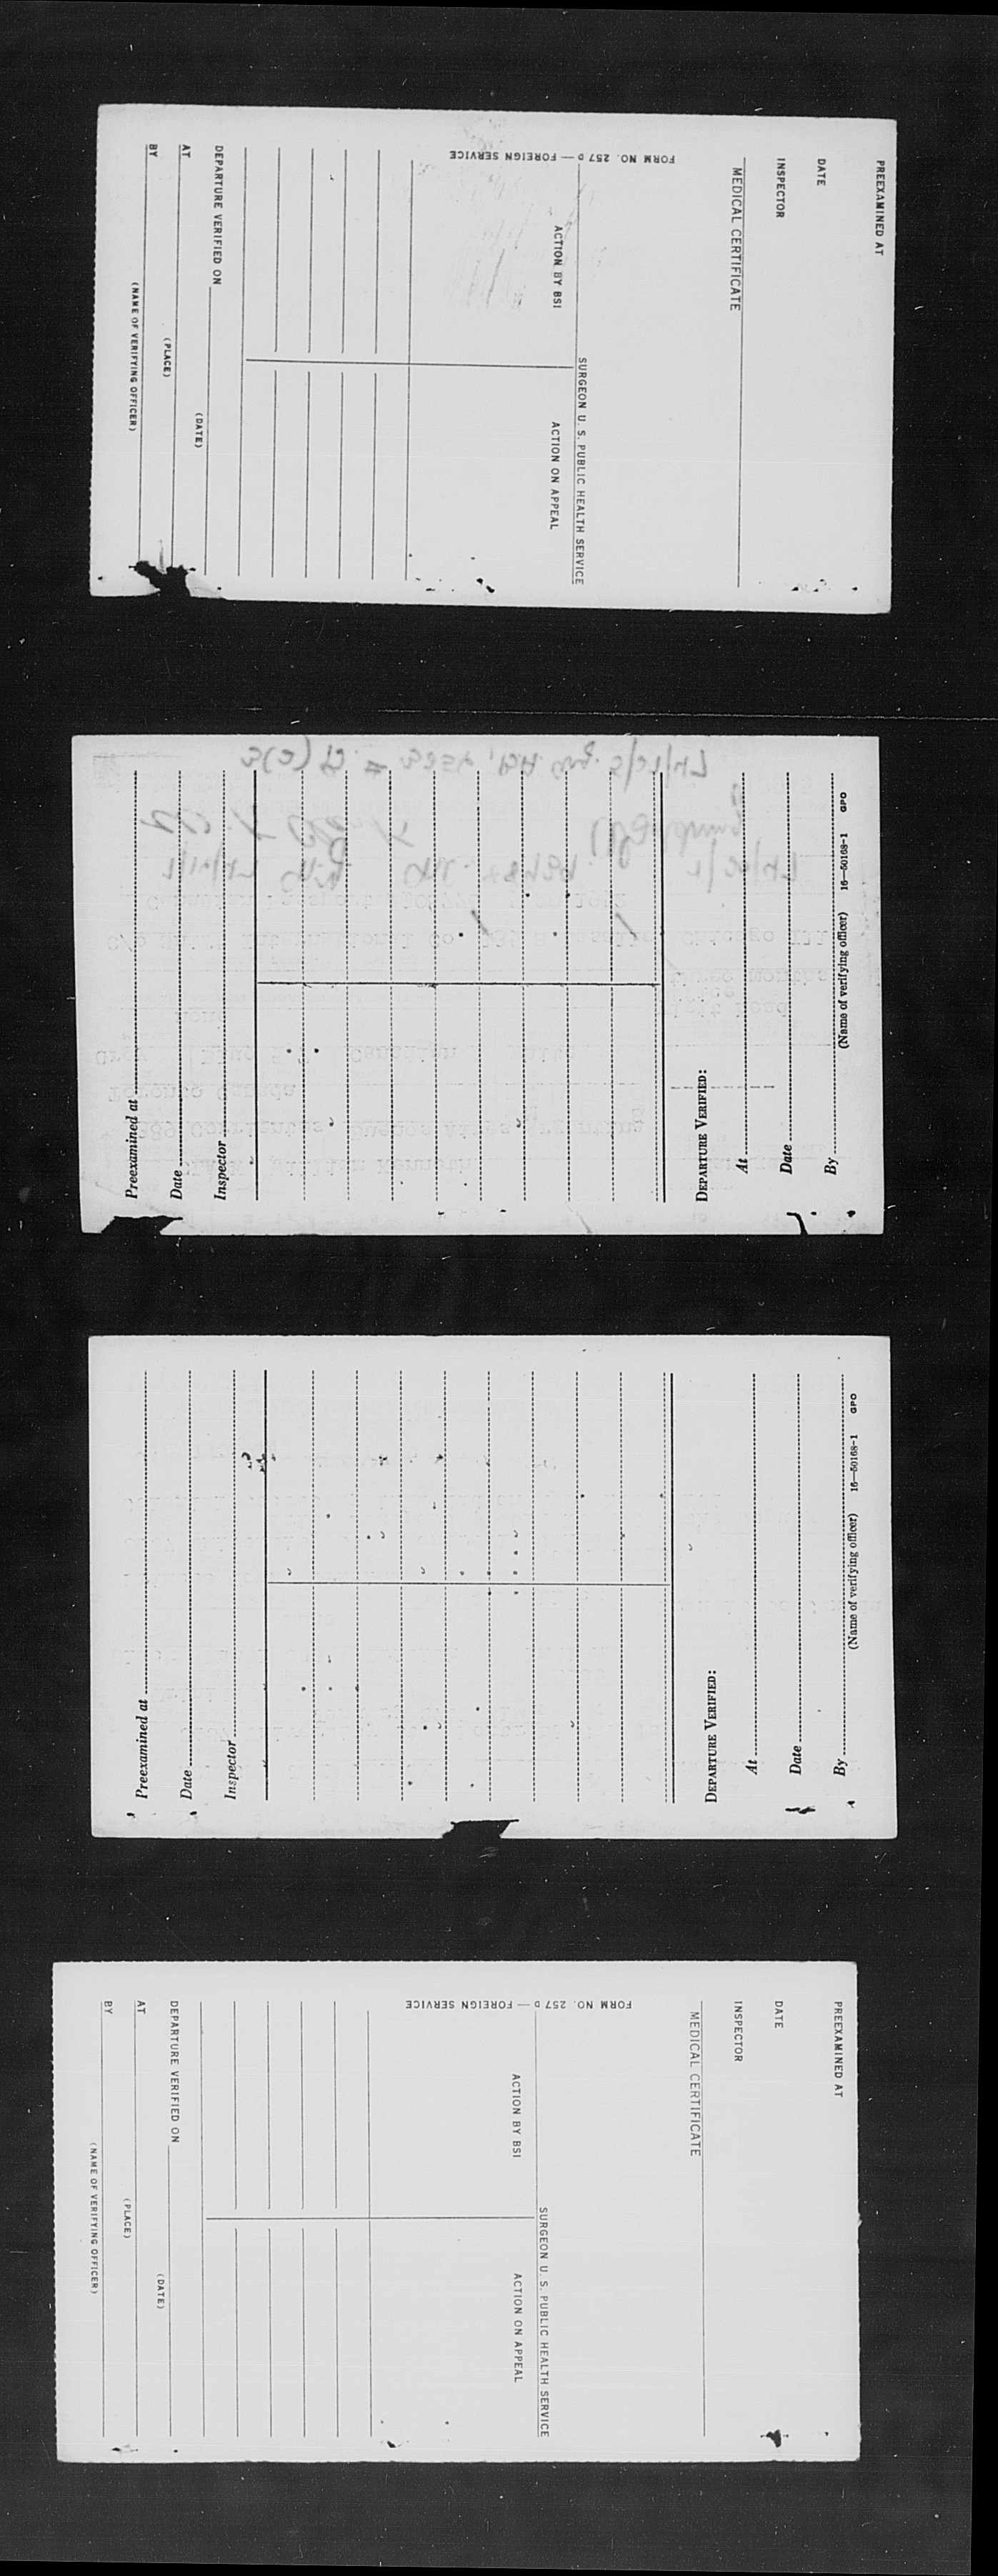 PREEXAMINED AT
DATE
INSPECTOR
MEDICAL CERTIFICATE
SURGEON U. S. PUBLIC HEALTH SERVICE
FORM NO. 257 D — FOREIGN SERVICE
ACTION BY BSI
ACTION ON APPEAL
DEPARTURE VERIFIED ON
(DATE)
AT
(PLACE)
BY
(NAME OF VERIFYING OFFICER)
Preexamined at
Date
Inspector
DEPARTURE VERIFIED:
At
Date
By
(Name of verifying officer)
16—50168-1 GPO
Preexamined at
Date
Inspector
DEPARTURE VERIFIED:
At
Date
By
(Name of verifying officer)
16—50168-1 GPO
PREEXAMINED AT
DATE
INSPECTOR
MEDICAL CERTIFICATE
SURGEON U. S. PUBLIC HEALTH SERVICE
FORM NO. 257 D — FOREIGN SERVICE
ACTION BY BSI
ACTION ON APPEAL
DEPARTURE VERIFIED ON
(DATE)
AT
(PLACE)
BY
(NAME OF VERIFYING OFFICER)